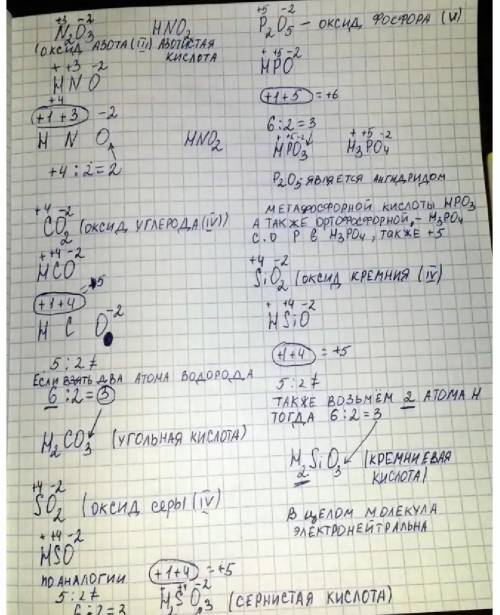 +3 -2
N₂O₃ HNO₂
(ОКСИД АЗОТА (III) АЗОТИСТАЯ
КИСЛОТА
+ +3 -2
HNO
+4
+1+3 -2
H N O
HNO₂
+4:2=2
+4 -2
CO₂ (ОКСИД УГЛЕРОДА (IV))
+ +4 -2
HCO
+1+4 +5
H C O⁻²
5:2≠
ЕСЛИ ВЗЯТЬ ДВА АТОМА ВОДОРОДА
6:2=3
H₂CO₃ (УГОЛЬНАЯ КИСЛОТА)
+4 -2
SO₂ (ОКСИД СЕРЫ (IV)
+ +4 -2
HSO
ПО АНАЛОГИИ
5:2≠
6:2=3
+5 -2
P₂O₅ – ОКСИД ФОСФОРА (V)
+ +5 -2
HPO
+1+5 = +6
6:2=3
+ +5 -2
HPO₃
+ +5 -2
H₃PO₄
P₂O₅ ЯВЛЯЕТСЯ АНГИДРИДОМ
МЕТАФОСФОРНОЙ КИСЛОТЫ HPO₃
А ТАКЖЕ ОРТОФОСФОРНОЙ – H₃PO₄
С.О P В H₃PO₄, ТАКЖЕ +5
+4 -2
SiO₂ (ОКСИД КРЕМНИЯ (IV)
+ +4 -2
HSiO
+1+4 = +5
5:2≠
ТАКЖЕ ВОЗЬМЁМ 2 АТОМА H
ТОГДА 6:2=3
H₂SiO₃ (КРЕМНИЕВАЯ
КИСЛОТА)
В ЦЕЛОМ МОЛЕКУЛА
ЭЛЕКТРОНЕЙТРАЛЬНА
+1+4 = +5
H₂SO₃ (СЕРНИСТАЯ КИСЛОТА)